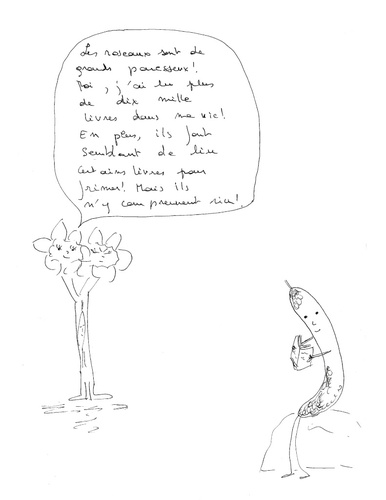 Les roseaux sont de
grands paresseux!
Moi, j'ai lu plus
de dix mille
livres dans ma vie!
En plus, ils font
semblant de lire
certains livres pour
frimer! Mais ils
n'y comprennent rien!